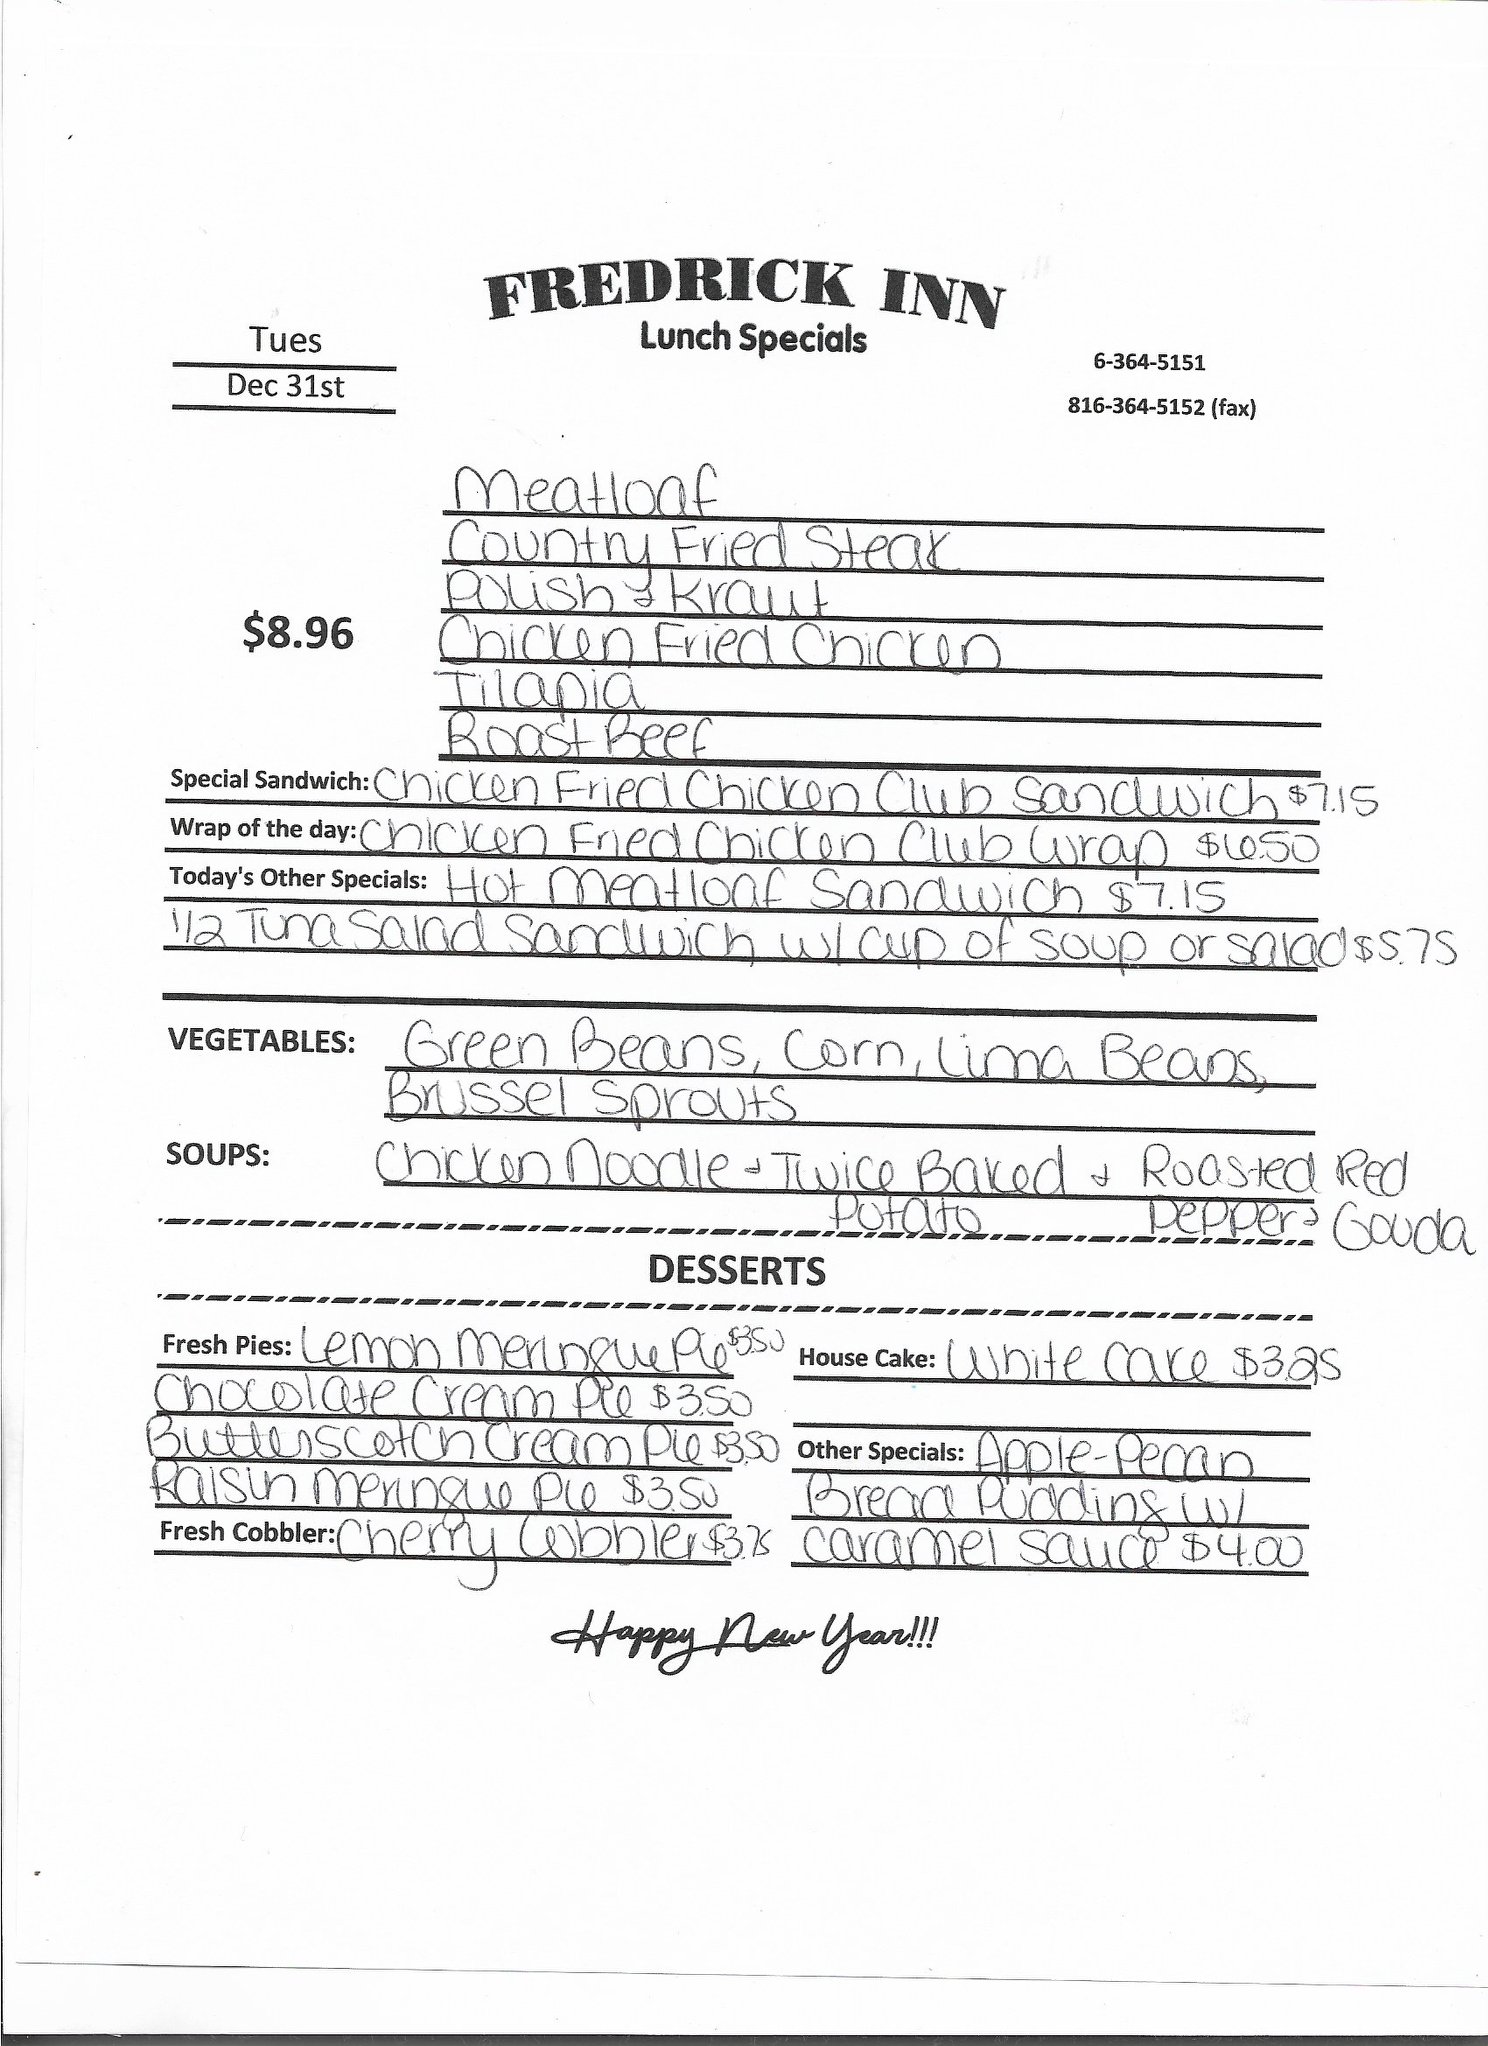 FREDRICK INN
Lunch Specials
Tues
Dec 31st
6-364-5151
816-364-5152 (fax)
$8.96
Meatloaf
Country Fried Steak
Polish & Kraut
Chicken Fried Chicken
Tilapia
Roast Beef
Special Sandwich: Chicken Fried Chicken Club Sandwich $7.15
Wrap of the day: Chicken Fried Chicken Club Wrap $6.50
Today's Other Specials: Hot Meatloaf Sandwich $7.15
1/2 Tuna Salad Sandwich w/ cup of soup or salad $5.75
VEGETABLES: Green Beans, Corn, Lima Beans,
Brussel Sprouts
SOUPS: Chicken Noodle & Twice Baked & Roasted Red
Potato Pepper & Gouda
DESSERTS
Fresh Pies: Lemon Meringue Pie $3.50
Chocolate Cream Pie $3.50
Butterscotch Cream Pie $3.50
Raisin Meringue Pie $3.50
Fresh Cobbler: Cherry Cobbler $3.75
House Cake: White Cake $3.25
Other Specials: Apple-Pecan
Bread Pudding w/
caramel sauce $4.00
Happy New Year!!!